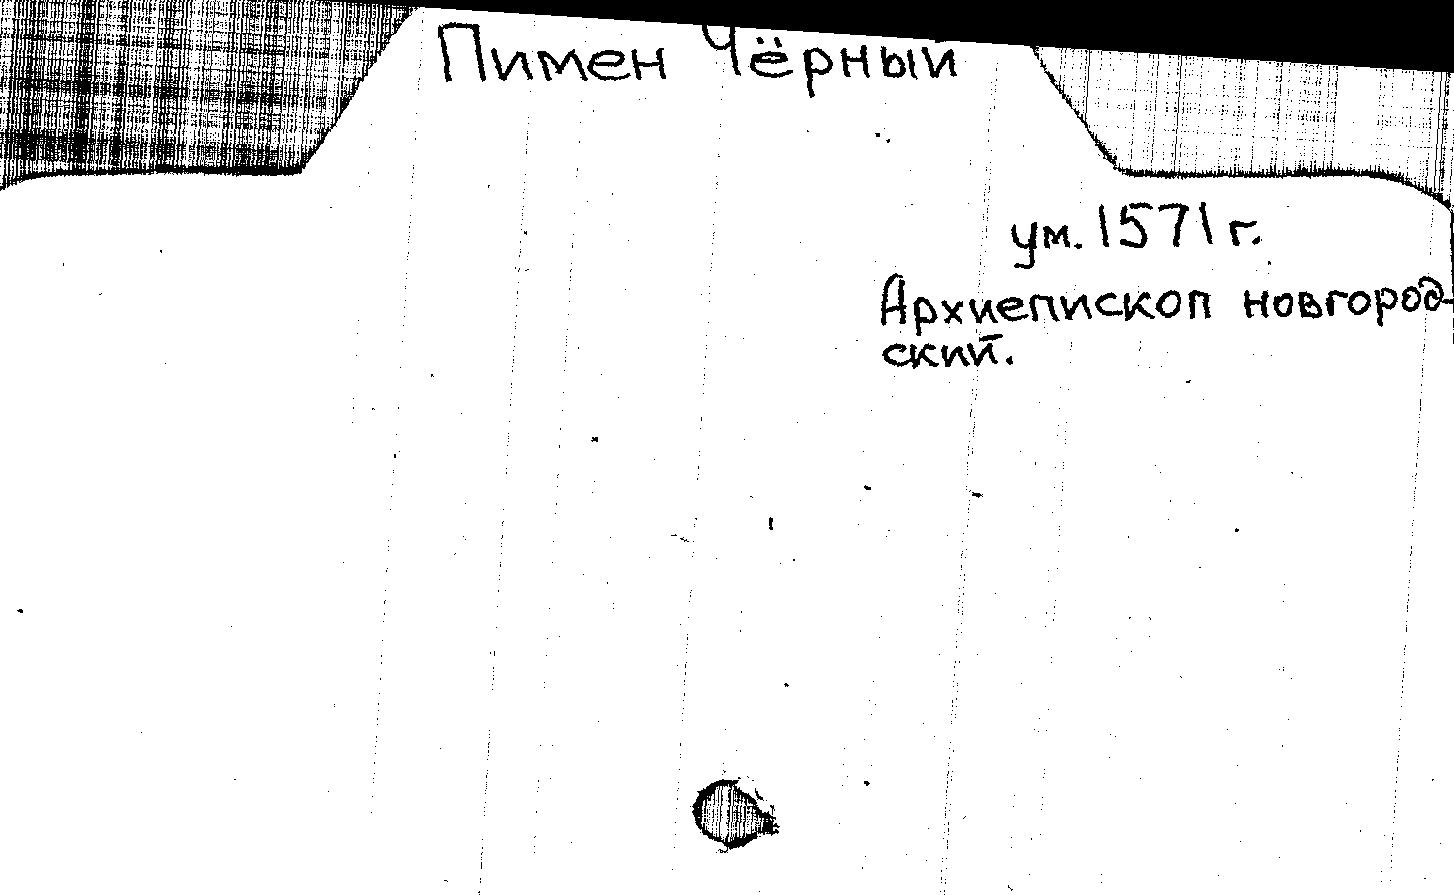 Пимен Чёрный
ум. 1571 г.
Архиепископ новгород-
ский.